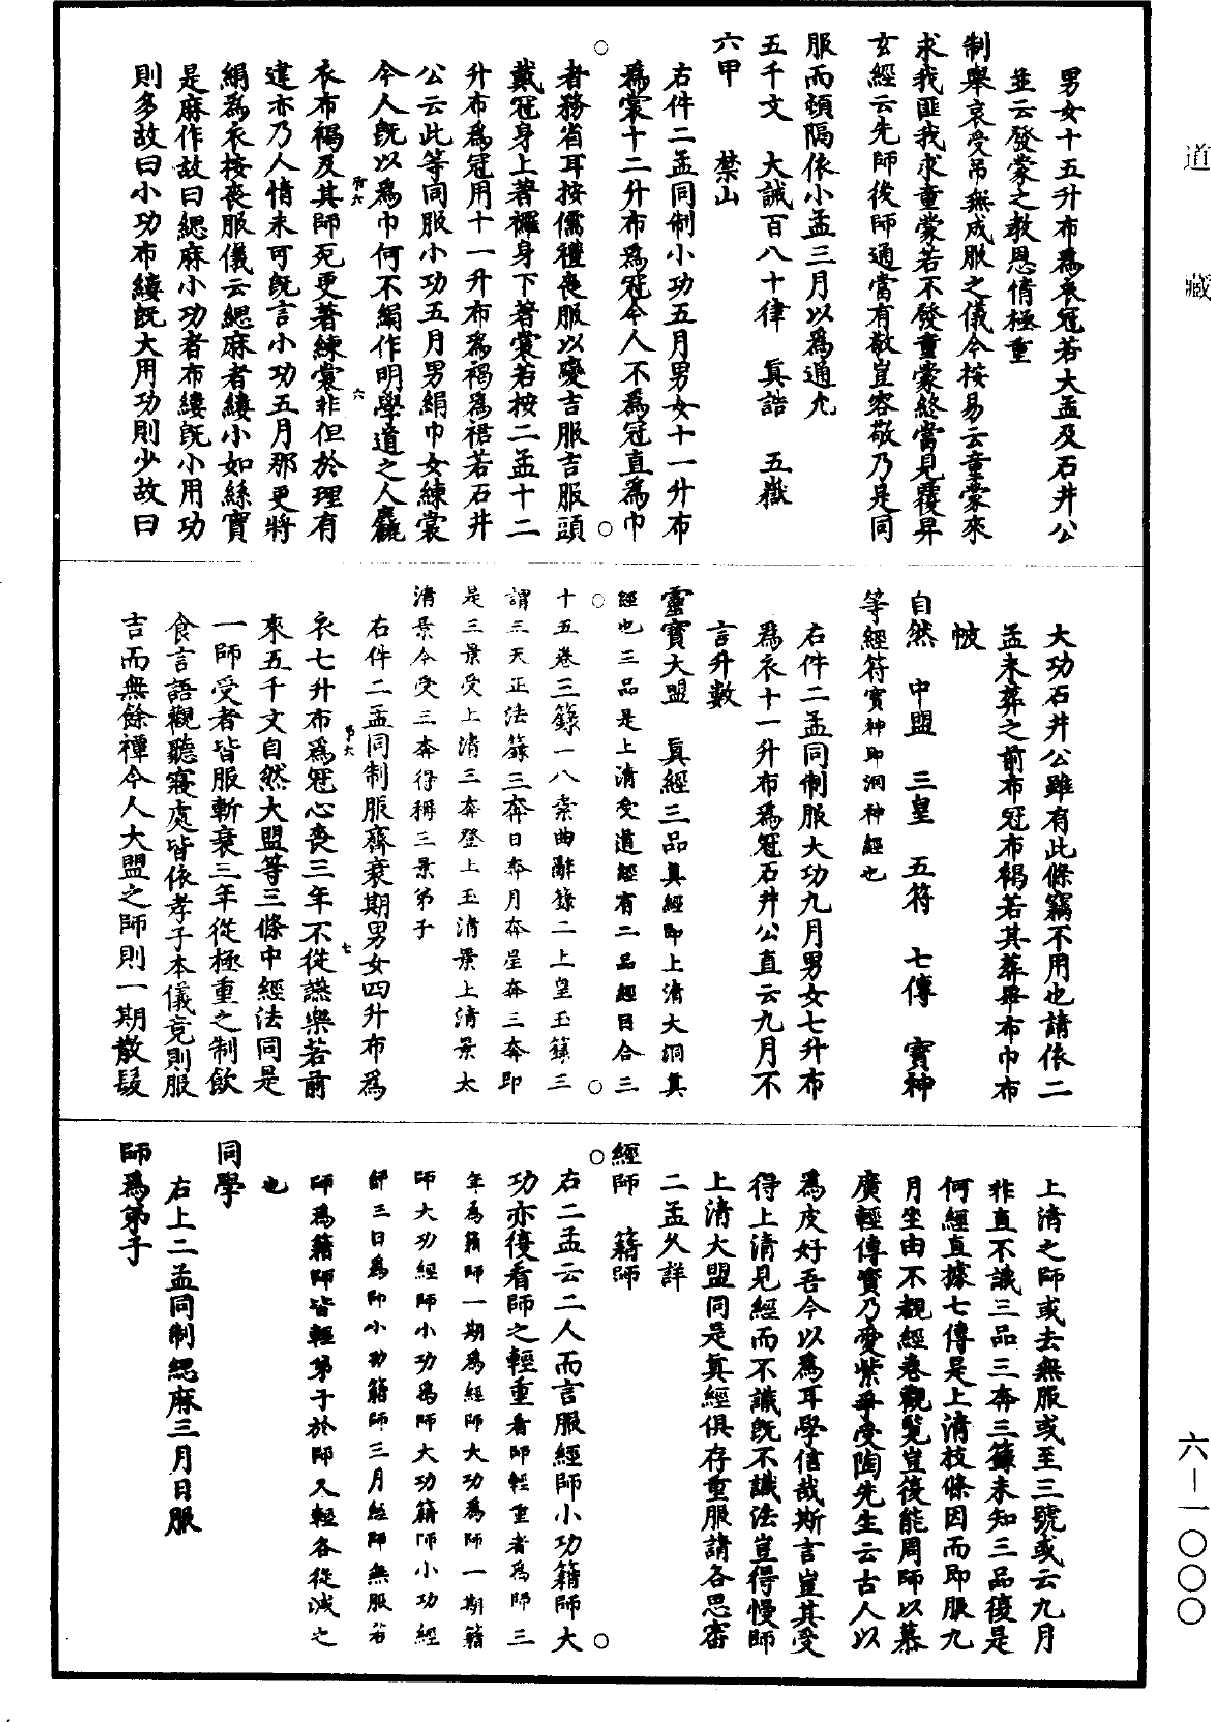 道藏
男女十五升布為衰冠若大孟及石井公
並云發蒙之教恩情極重
制舉哀受吊無成服之儀今按易云童蒙來
求我匪我求童蒙若不發童蒙終當見覆昇
玄經云先師後師通當有敬豈容敬乃是同
服而頓隔依小孟三月以為通允
五千文 大誡百八十律 真誥 五嶽
六甲 禁山
右件二孟同制小功五月男女十一升布
為裳十二升布為冠今人不為冠直為巾
者務省耳按儒禮喪服以變吉服吉服頭
戴冠身上著襬身下著裳若按二孟十二
升布為冠用十一升布為褐為裙若石井
公云此等同服小功五月男絹巾女練裳
今人既以為巾何不絹作明學道之人麤
衣布褐及其師死更著練裳非但於理有
違亦乃人情未可既言小功五月那更將
絹為衣按喪服儀云緦麻者縷小如絲實
是麻作故曰緦麻小功者布縷既小用功
則多故曰小功布縷既大用功則少故曰
大功石井公雖有此條竊不用也請依二
孟未葬之前布冠布褐若其葬畢布巾布
帔
自然 中盟 三皇 五符 七傳 寶神
等經符寶神即洞神經也
右件二孟同制服大功九月男女七升布
為衣十一升布為冠石井公直云九月不
言升數
靈寶大盟 真經三品真經即上清大洞真
經也三品是上清受道經有二品經目合三
十五卷三籙一八素曲辭籙二上皇玉籙三
謂三天正法籙三奔日奔月奔星奔三奔即
是三景受上清三奔登上玉清景上清景太
清景今受三奔得稱三景弟子
右件二孟同制服齊衰期男女四升布為
衣七升布為冠心喪三年不從讌樂若前
來五千文自然大盟等三條中經法同是
一師受者皆服斬衰三年從極重之制飲
食言語觀聽寢處皆依孝子本儀竟則服
吉而無餘禫今人大盟之師則一期散髮
上清之師或去無服或至三號或云九月
非直不識三品三奔三籙未知三品復是
何經直據七傳是上清枝條因而即服九
月坐由不覩經卷觀覽豈復能周師以慕
廣輕傳寶乃愛紫受陶先生云古人以
為皮好吾今以為耳學信哉斯言豈其受
得上清見經而不識既不識法豈得慢師
上清大盟同是真經俱存重服請各思審
二孟久詳
經師 籍師
右二孟云二人而言服經師小功籍師大
功亦復看師之輕重看師輕重者為師三
年為籍師一期為經師大功為師一期籍
師大功經師小功為師大功籍師小功經
師三日為師小功籍師三月經師無服若
師為籍師皆輕弟子於師又輕各從減之
也
同學
右上二孟同制緦麻三月日服
師為弟子
六—一〇〇〇